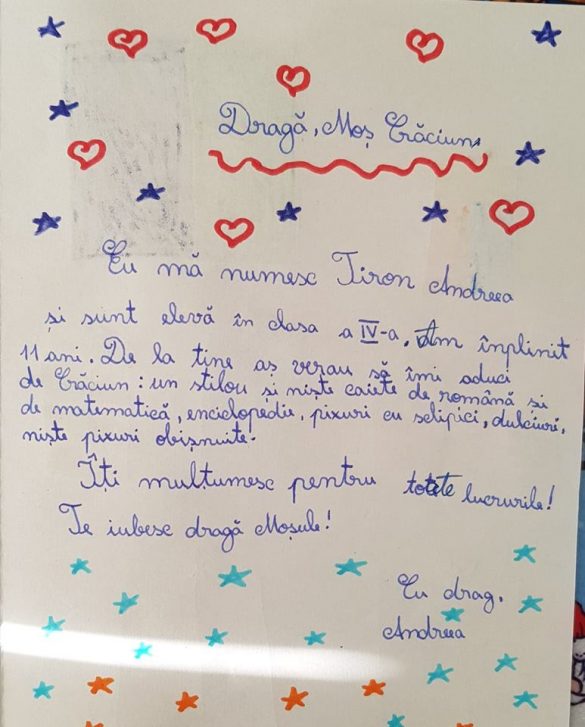 Dragă, Moș Crăciun,
Eu mă numesc Tiron Andreea
și sunt elevă în clasa a IV-a. Am înplinit
11 ani. De la tine aș verau să îmi aduci
de Crăciun: un stilou și niște caiete de română și
de matematică, enciclopedie, pixuri cu sclipici, dulciuri,
niște pixuri obișnuite.
Îți mulțumesc pentru toate lucrurile!
Te iubesc dragă Moșule!
Cu drag,
Andreea